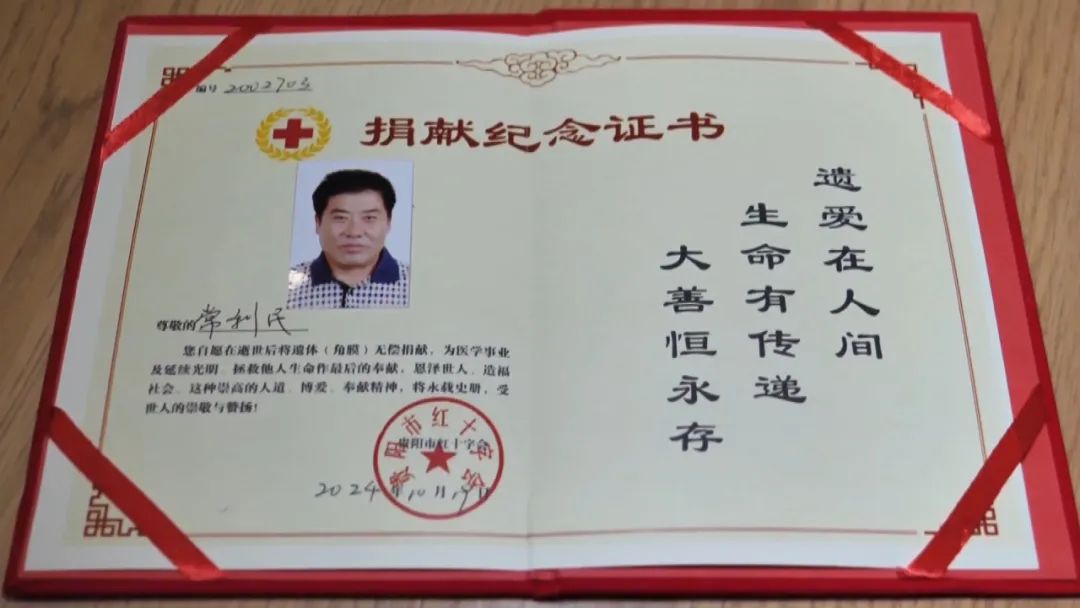 编号 2002703
捐献纪念证书
尊敬的常利民
您自愿在逝世后将遗体（角膜）无偿捐献，为医学事业
及延续光明、拯救他人生命作最后的奉献，恩泽世人、造福
社会。这种崇高的人道、博爱、奉献精神，将永载史册，受
世人的崇敬与赞扬！
阳市红十字会
2024年10月19日
遗爱在人间
生命有传递
大善恒永存